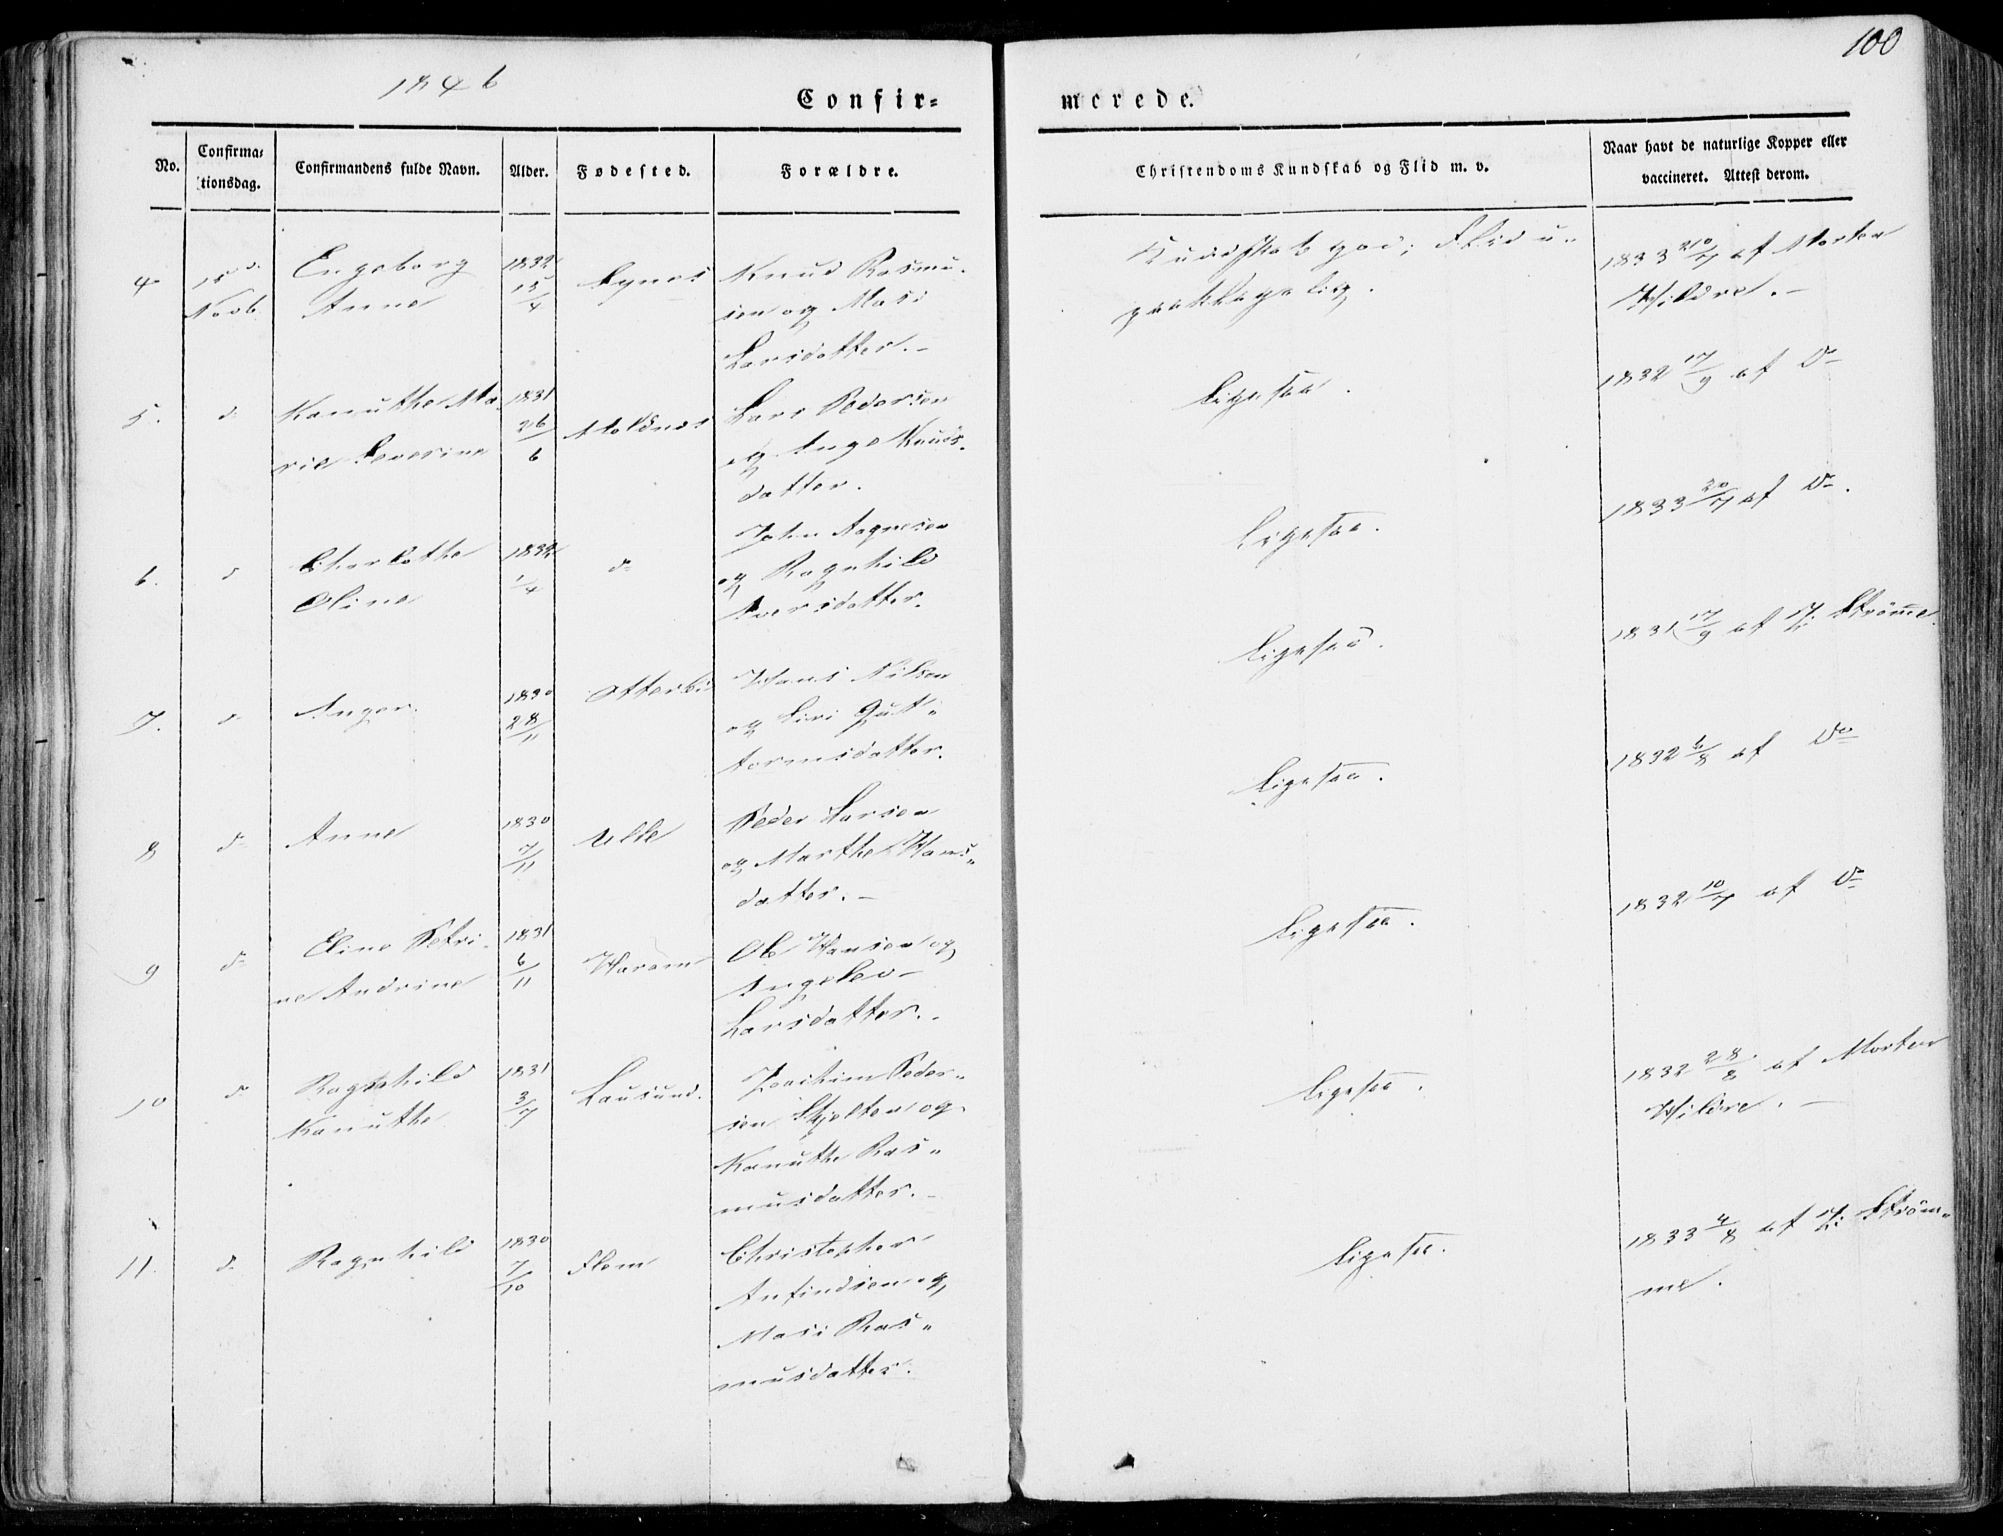 1846
100
Confir=
merede.
No.
Confirma=
tionsdag.
Confirmandens fulde Navn.
Alder.
Fødested.
Forældre.
Christendoms Kundskab og Flid m. v.
Naar havt de naturlige Kopper eller
vaccineret. Attest derom.
4
15 d.
Novb.
Engeborg
Anne
1832
15/4
Knud Rasmu-
sen og Masi
Larsdatter.-
Kundskab god; Flid u-
paaklagelig.
1833 20/7 af Morten
Hildre.-
5.
d
Kanutha Ma-
rie Severine
1831
26/6
Moldnes
Lars Pedersen
og Inge Knuds-
datter.
Ligesaa.
1832 17/9 af Do
6.
d
Charlotte
Oline
1832
1/4
do
John Aagesen
og Ragnhild
Iversdatter.
Ligesaa.
1833 20/7 af Do.
7.
d
Inger.
1830
28/11
Otterlei
Hans Nilsen
og Siri Gut-
tormsdatter.
Ligesaa.
1831 17/9 af Strømme
8
do
Anne
1830
7/11
Ulle
Peder Larsen
og Marthe Hans-
datter.-
Ligesaa.
1832 6/8 af Do
9
do
Eline Petri-
ne Andrine
1831
6/11
Haram
Ole Hansen og
Ingelev
Larsdatter.-
Ligesaa.
1832 10/7 af Do
10
do
Ragnhild
Kanutha
1831
3/7
Lausund.
Joachim Peder-
sen Skjelten og
Kanutha Ras-
musdatter.-
Ligesaa.
1832 28/8 af Morten
Hildre.-
11.
do
Ragnhild
1830
7/10
Flem
Christopher
Anfindsen og
Masi Ras-
musdatter.
Ligesaa.
1833 4/8 af Strøm-
me.